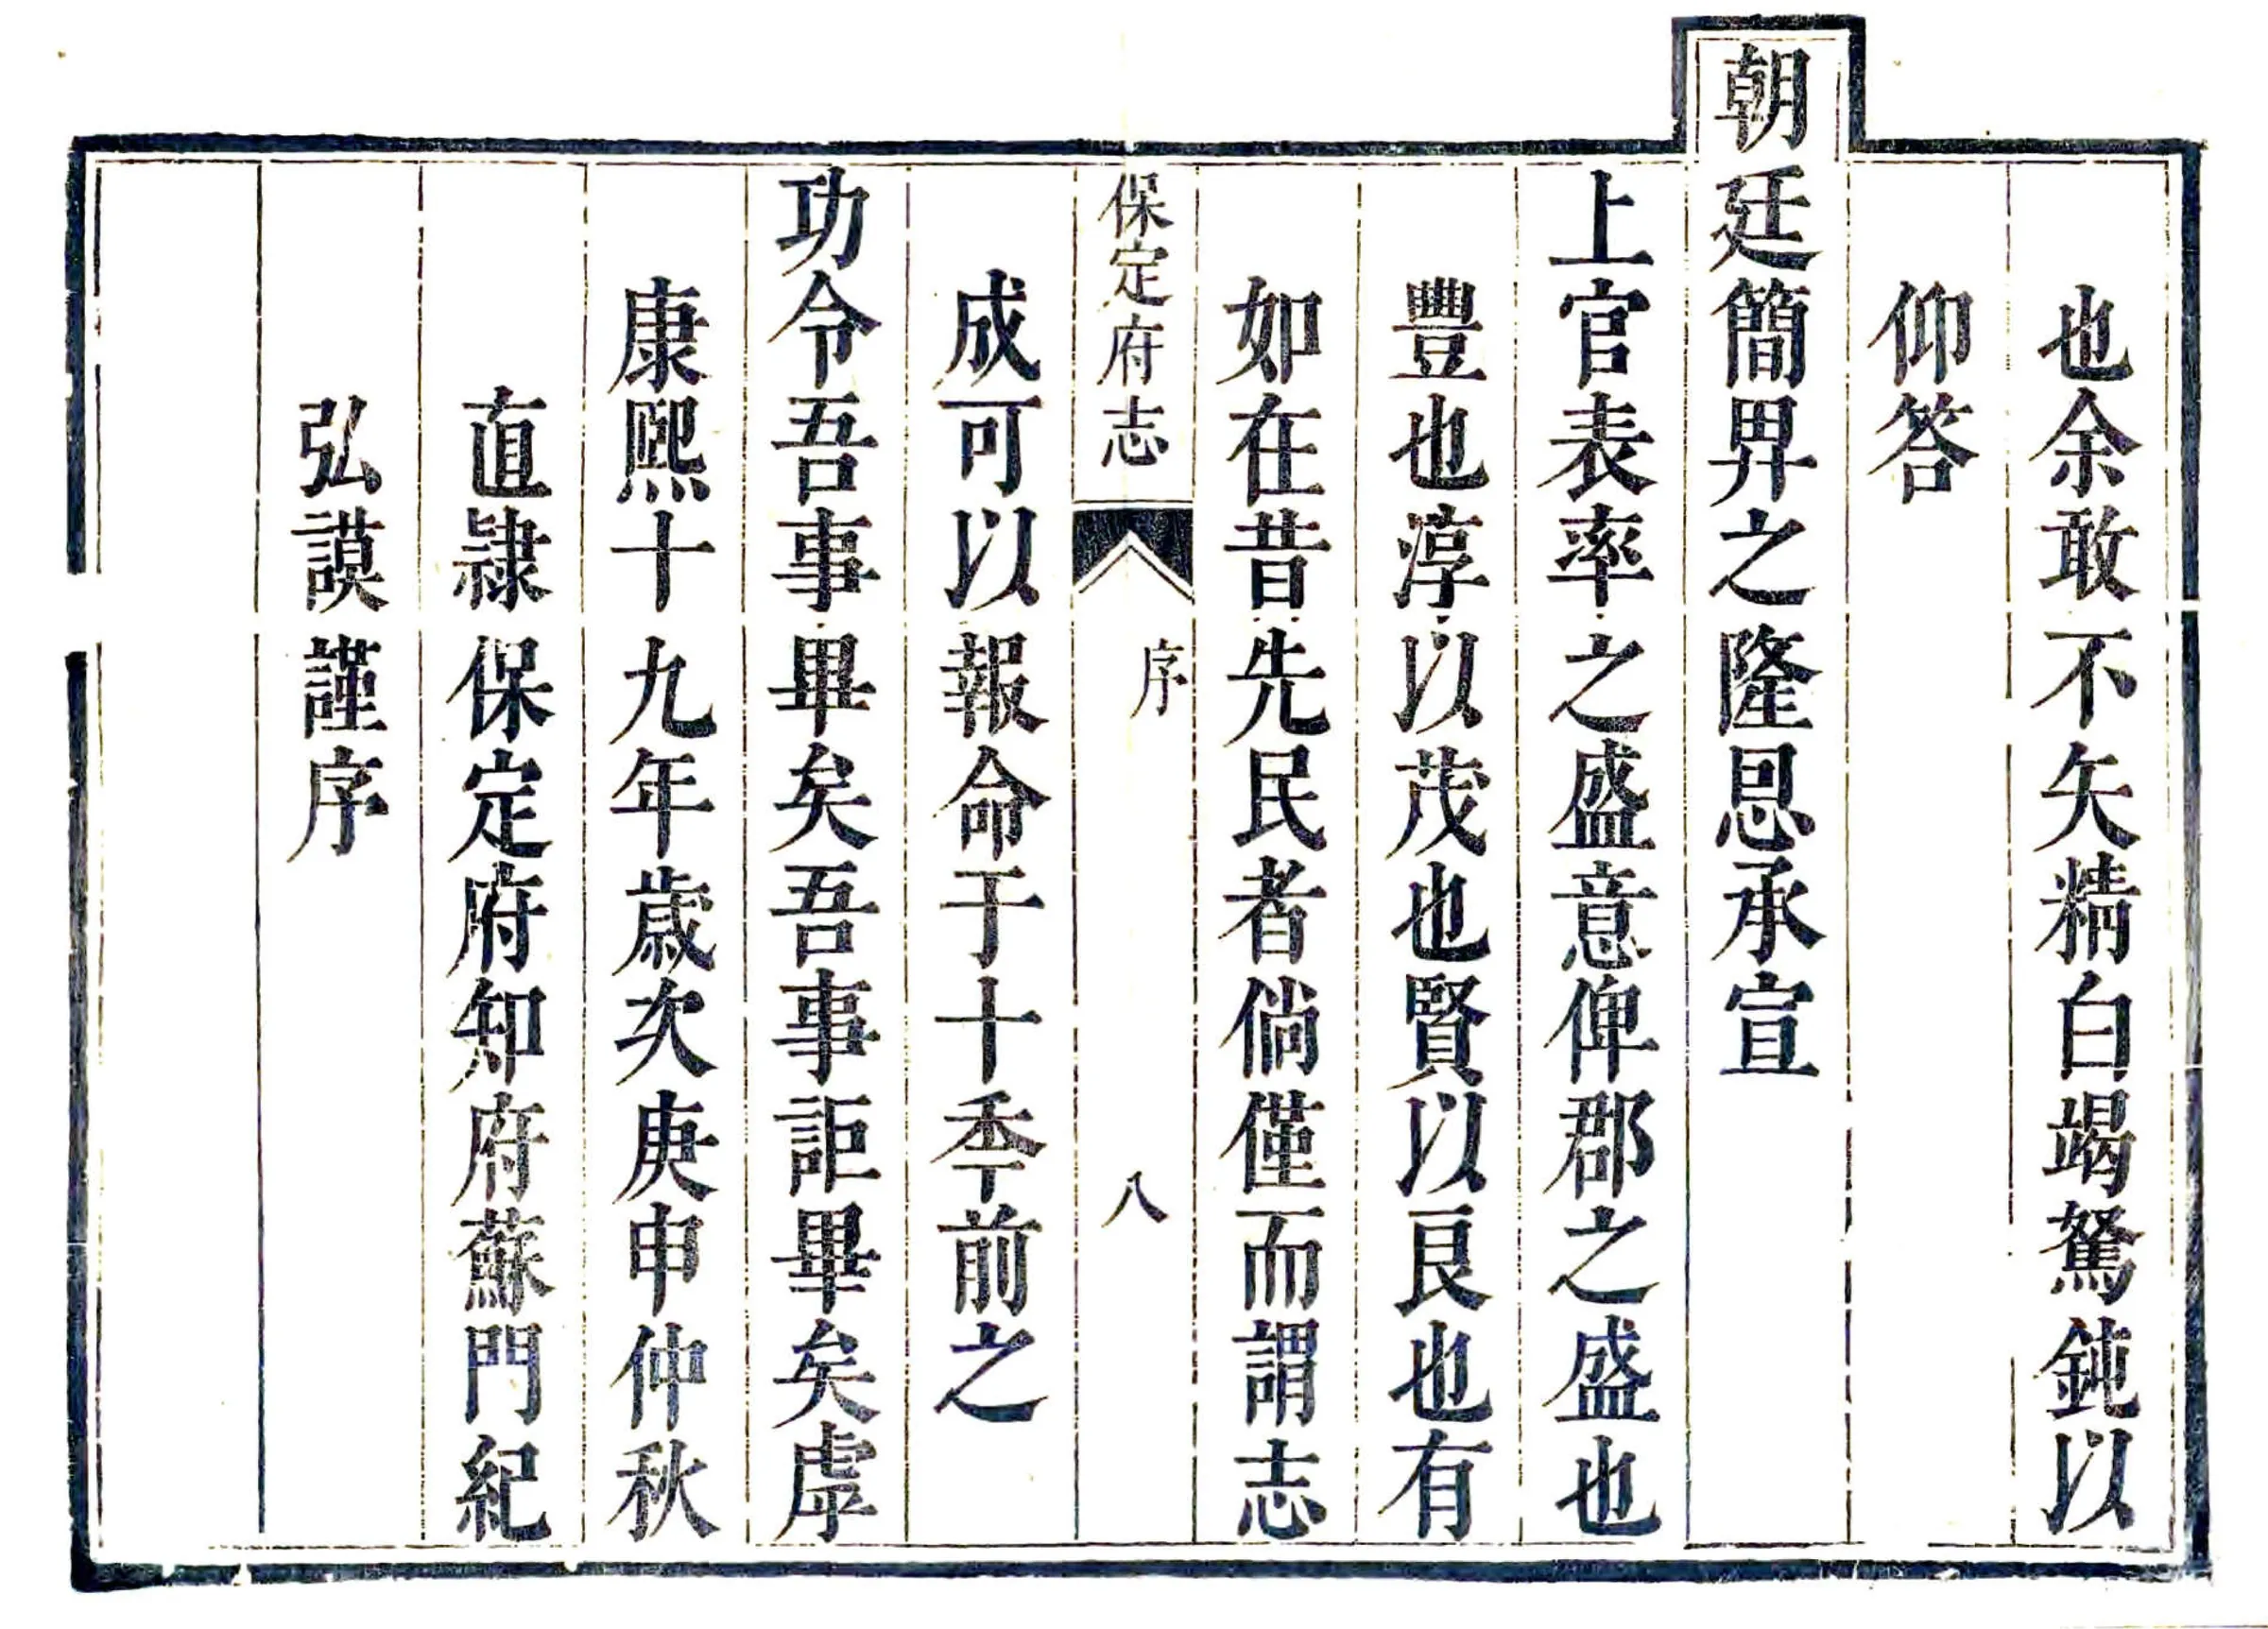 也余敢不矢精白竭駑鈍以
仰答
朝廷簡畀之隆恩承宣
上官表率之盛意俾郡之盛也
豐也淳以茂也賢以良也有
如在昔先民者倘僅而謂志
保定府志 序 八
成可以報命于十秊前之
功令吾事畢矣吾事詎畢矣虖
康熙十九年歲次庚申仲秋
直隷保定府知府蘇門紀
弘謨謹序